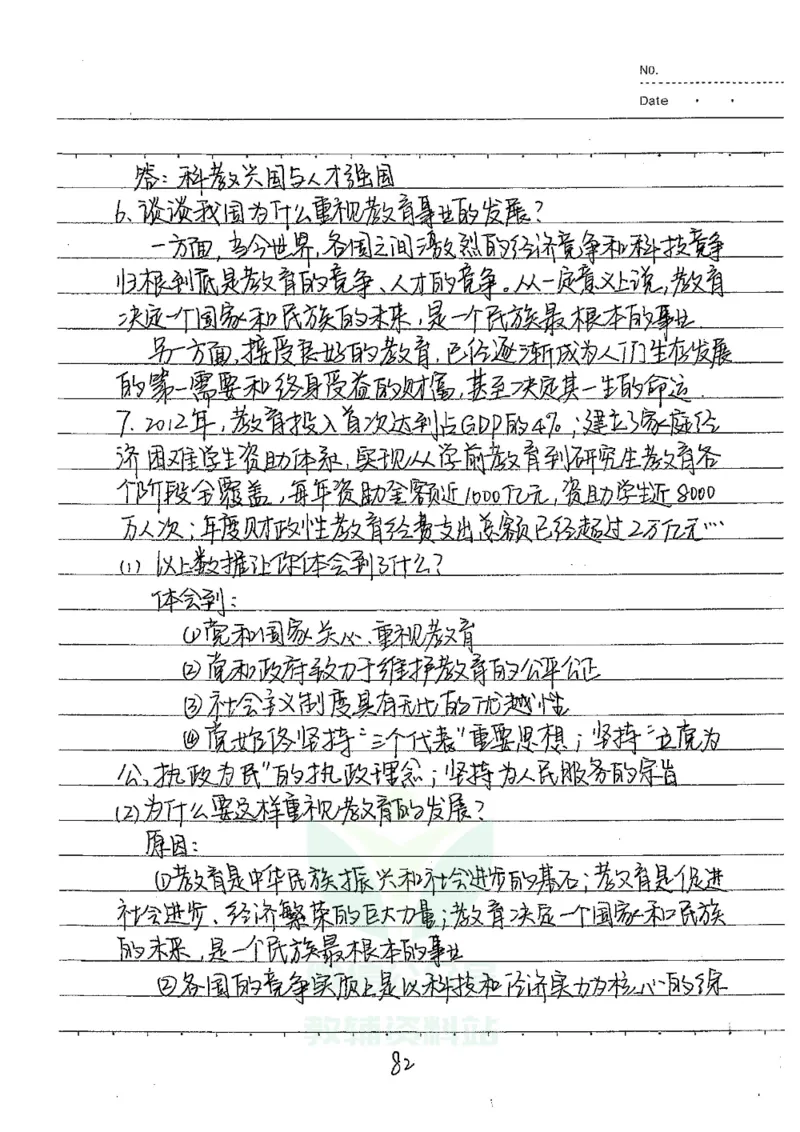 No.
Date
答:科教兴国与人才强国
6、谈谈我国为什么重视教育事业的发展?
一方面,当今世界,各国之间激烈的经济竞争和科技竞争
归根到底是教育的竞争、人才的竞争。从一定意义上说,教育
决定一个国家和民族的未来,是一个民族最根本的事业.
另一方面,接受良好的教育,已经逐渐成为人们生存发展
的第一需要和终身受益的财富,甚至决定其一生的命运.
7.2012年,教育投入首次达到占GDP的4%;建立了家庭经
济困难学生资助体系,实现从学前教育到研究生教育各
个阶段全覆盖,每年资助金额近1000亿元,资助学生近8000
万人次;年度财政性教育经费支出总额已经超过2万亿元…
(1)以上数据让你体会到了什么?
体会到:
①党和国家关心、重视教育
②党和政府致力于维护教育的公平公正
③社会主义制度具有无比的优越性
④党始终坚持“三个代表”重要思想;坚持“立党为
公,执政为民”的执政理念;坚持为人民服务的宗旨
(2)为什么要这样重视教育的发展?
原因:
①教育是中华民族振兴和社会进步的基石;教育是促进
社会进步、经济繁荣的巨大力量;教育决定一个国家和民族
的未来,是一个民族最根本的事业
②各国的竞争实质上是以科技和经济实力为核心的综
教辅资料站
82